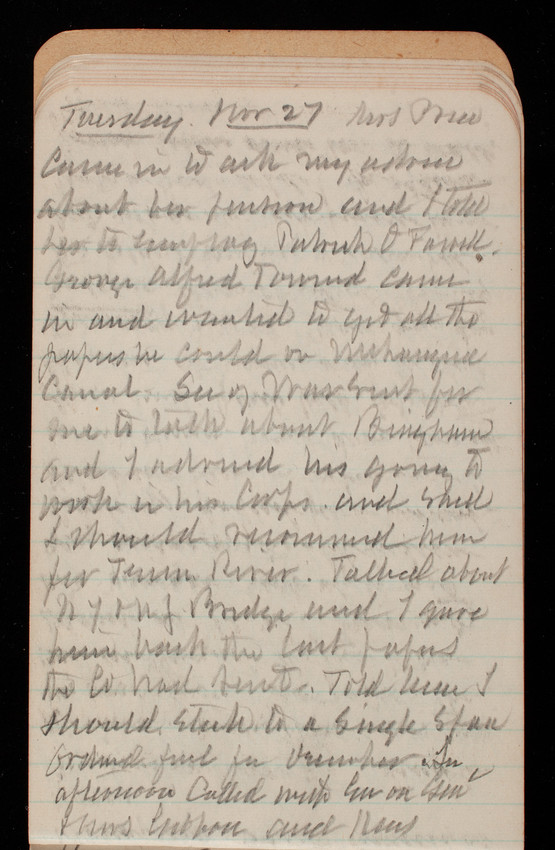 Tuesday. Nov 27 Mrs Price
Came in to ask my advice
about her pension and I told
her to employ Patrick O'Farrell.
George Alfred Townsend came
in and wanted to get all the
papers he could on Nicaragua
Canal. Sec of War sent for
me to talk about Bingham
and I advised his going to
work in his Corps. and said
I should recommend him
for Tenn River. Talked about
N Y & N J Bridge and I gave
him back the last papers
the Co had sent. Told him I
should stick to a single span
Ordered fuel for December. In
afternoon Called with Em on Gen'
& Mrs and